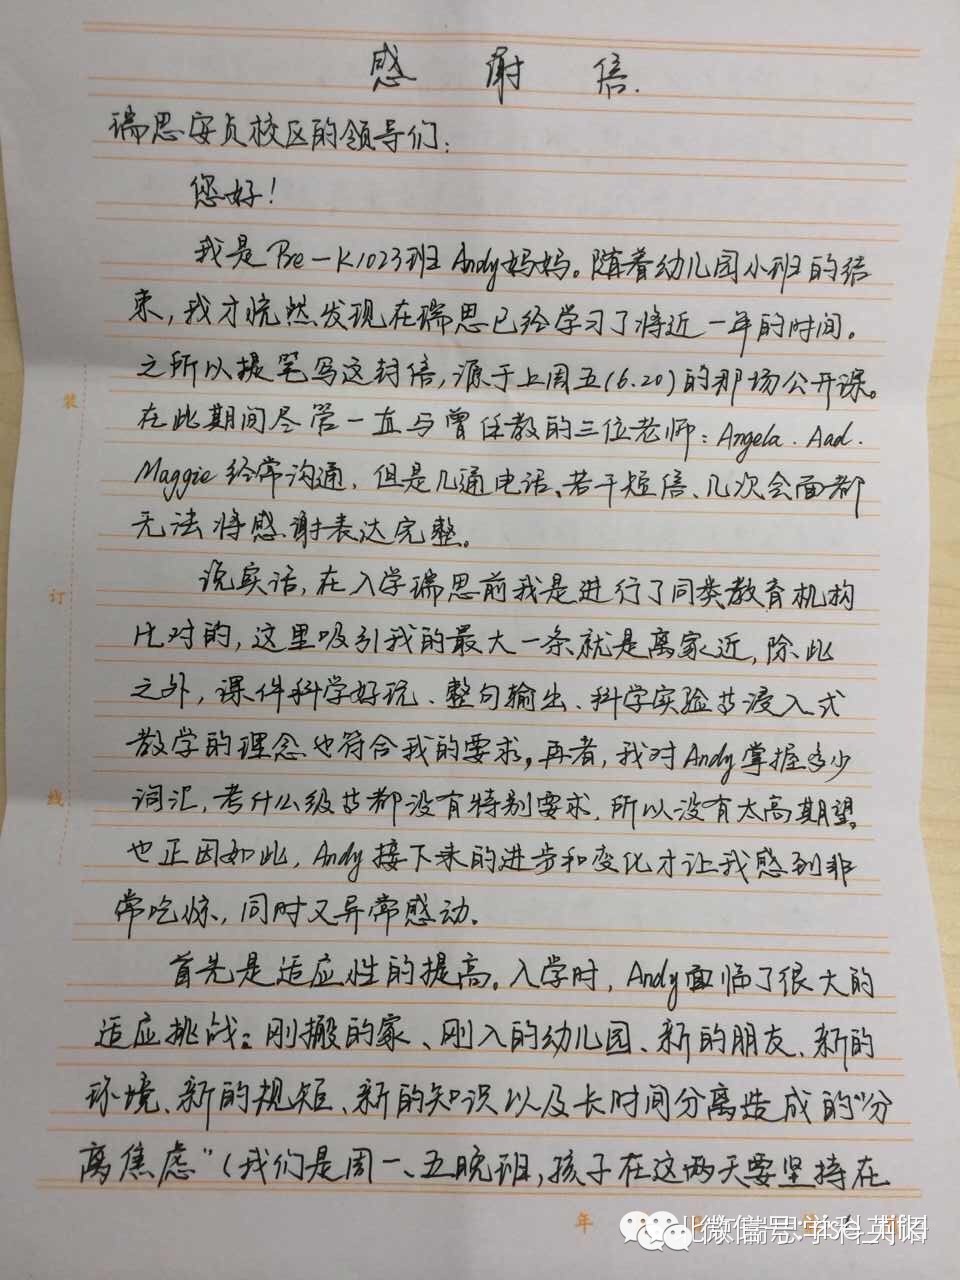 感谢信.
瑞思安贞校区的领导们:
您好!
我是Be-K1023班Andy妈妈。随着幼儿园小班的结
束,我才恍然发现在瑞思已经学习了将近一年的时间。
之所以提笔写这封信,源于上周五(6.20)的那场公开课。
在此期间尽管一直与曾任教的三位老师:Angela.Aad.
Maggie经常沟通,但是几通电话、若干短信、几次会面都
无法将感谢表达完整。
说实话,在入学瑞思前我是进行了同类教育机构
比对的,这里吸引我的最大一条就是离家近,除此
之外,课件科学好玩、整句输出、科学实验节浸入式
教学的理念也符合我的要求。再者,我对Andy掌握多少
词汇,考什么级节都没有特别要求,所以没有太高期望。
也正因如此,Andy接下来的进步和变化才让我感到非
常吃惊,同时又异常感动.
首先是适应性的提高。入学时,Andy面临了很大的
适应挑战:刚搬的家、刚入的幼儿园、新的朋友、新的
环境、新的规矩、新的知识以及长时间分离造成的"分
离焦虑"(我们是周一、五晚班,孩子在这两天要坚持在
装
订
线
年